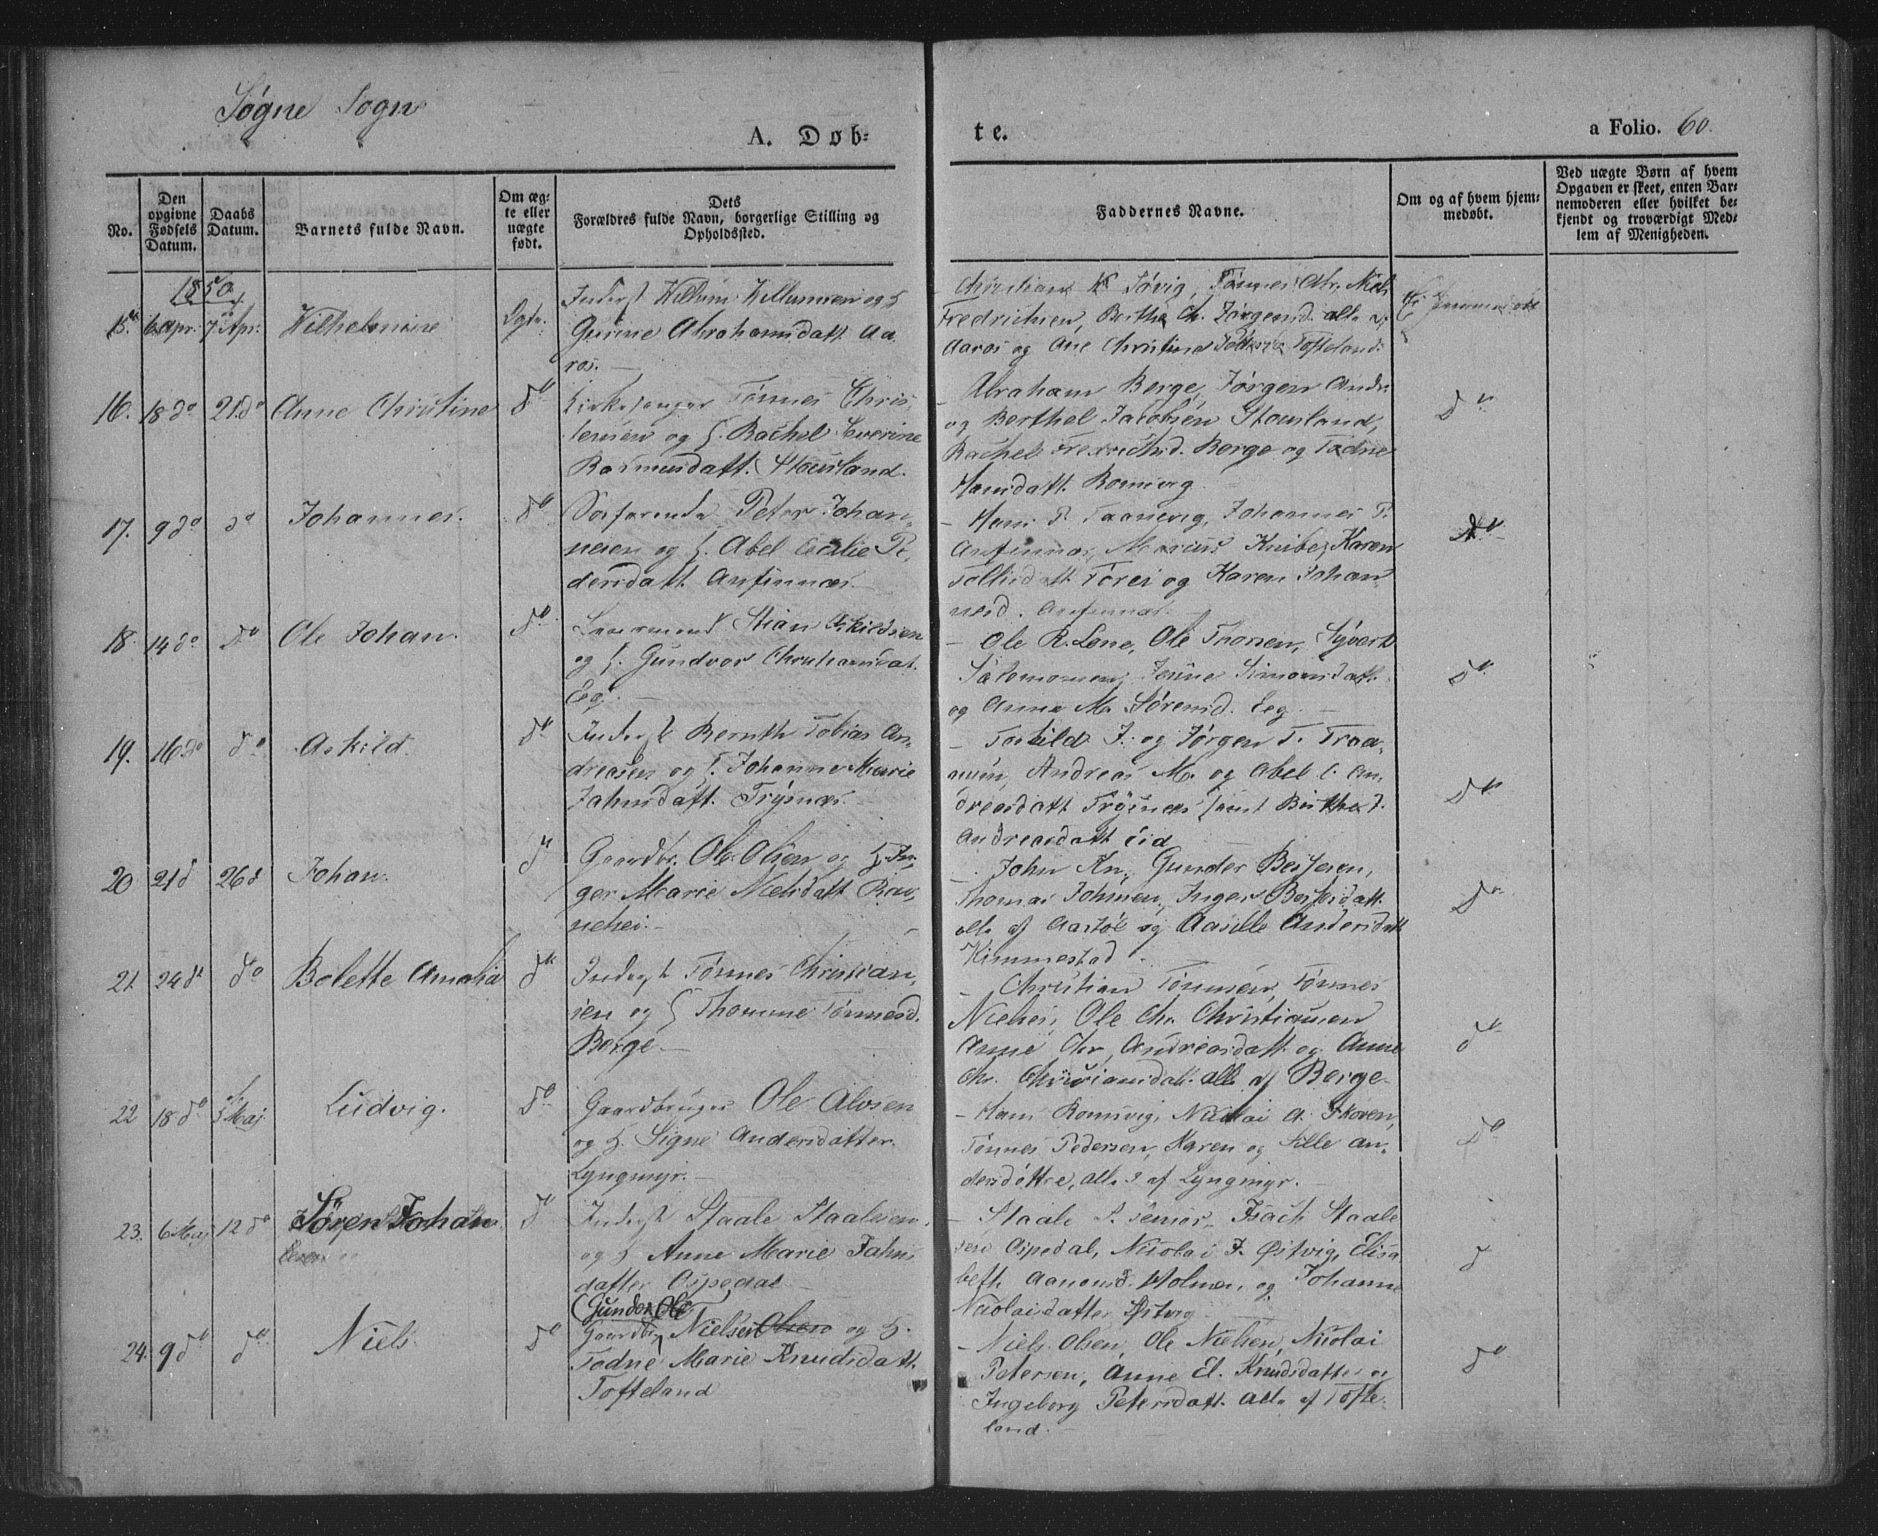 Søgne Sogn
A. Døb-
te.
a Folio. 60.
No.
Den
opgivne
Fødsels
Datum.
Daabs
Datum.
Barnets fulde Navn.
Om æg-
te eller
uægte
født.
Dets
Forældres fulde Navn, borgerlige Stilling og
Opholdssted.
Faddernes Navne.
Om og af hvem hjem-
medøbt.
Ved uægte Børn af hvem
Opgaven er skeet, enten Bar-
nemoderen eller hvilket be-
kjendt og troværdigt Med-
lem af Menigheden.
1850
15. 6 Apr. 7 Apr. Wilhelmine Egte.
Inderst Willum Willumsen og H.
Gurine Abrahamsdatt. Aa-
ros.
Christian Søvig, Tønnes Chr. Niels
Fredrichsen, Berthe Ch. Jørgensd. alle af
Aaros og Ane Christine Tofteland.
16. 18 do 21 do Anne Christine do
Kirkesanger Tønnes Chris-
tensen og H. Rachel Severine
Rasmusdatt. Stousland.
- Abraham Berge, Jørgen Andr.
og Berthel Jacobsen Stousland,
Rachel Fredrichsd. Berge og Todne
Hansdatt. Romsvig
do
17. 9 do do Johannes. do
Søefarende Peter Johan-
nesen og H. Abel Cecilie Pe-
dersdatt Amfinnæs
- Hans P. Taanevig, Johannes P.
Amfinnæs, Marcus Knibe, Karen
Tollisdatt Torei og Karen Johan-
nesd. Amfinnæs
do
18. 14 do do Ole Johan. do
Stian Askildsen
og H. Gundvor Christiansdat.
Eeg.
- Ole R. Lene, Ole Taarsen, Syvert
Salemonsen, Jenne Simonsdatt.
og Anna M. Sørensd. Eeg
do
19. 16 do do Askild. do
Inderst Bernth Tobias An-
dreasen og H. Johanne Marie
Jahnsdatt. Trysnæs.
- Torkild J. og Jørgen T. Traa-
num, Andreas M. og Abel C. An-
dreasdatt Trysnæs samt Berthe T.
Andreasdatt Eid
do
20 21 d 26 d Johan. do
Gaardbr. Ole Olsen og H. In-
ger Marie Nielsdatt Rav-
nehei.
- John An., Gunder Bessesen,
Thomas Johnsen, Inger Bessesdatt.
alle af Aastøl og Aasille Andersdatt
Kimmestad.
do
21. 24 do do Bolette Amalia do
Inderst Tønnes Christian-
sen og H. Thomine Tønnesd.
Berge.
- Christian Tønnesen, Tønnes
Nielsen, Ole Chr. Christiansen
Anne Chr. Andreasdatt. og Anne
Chr. Christiansdat. alle af Berge
do
22 18 do 5 Maj Ludvig. do
Gaardbruger Ole Alvsen
og H. Signe Andersdatter.
Lyngmyr.
- Hans Romsvig, Nicolai A. Skoven,
Tønnes Pedersen, Karen og Sille An-
dersdøttre, alle 3 af Lyngmyr.
do
23. 6 Maj 12 do Søren Johan do
Inderst Staale Staalesen
og H. Anne Marie Jahns-
datter Ospedal
- Staale S. senior, Isach Staale-
sen Ospedal, Nicolai J. Østvig, Elisa-
beth Aanonsd. Holmen, og Johanne
Nicolaisdatter Østvig
do
24. 9 do do Niels do
Gunder Ole
Gaardbr. Nielsen Olsen og H.
Todne Marie Knudsdatt.
Tofteland
- Niels Olsen, Ole Nielsen, Nicolai
Petersen, Anne El. Knudsdatter og
Ingeborg Petersdatt. alle af Tofte-
land.
do